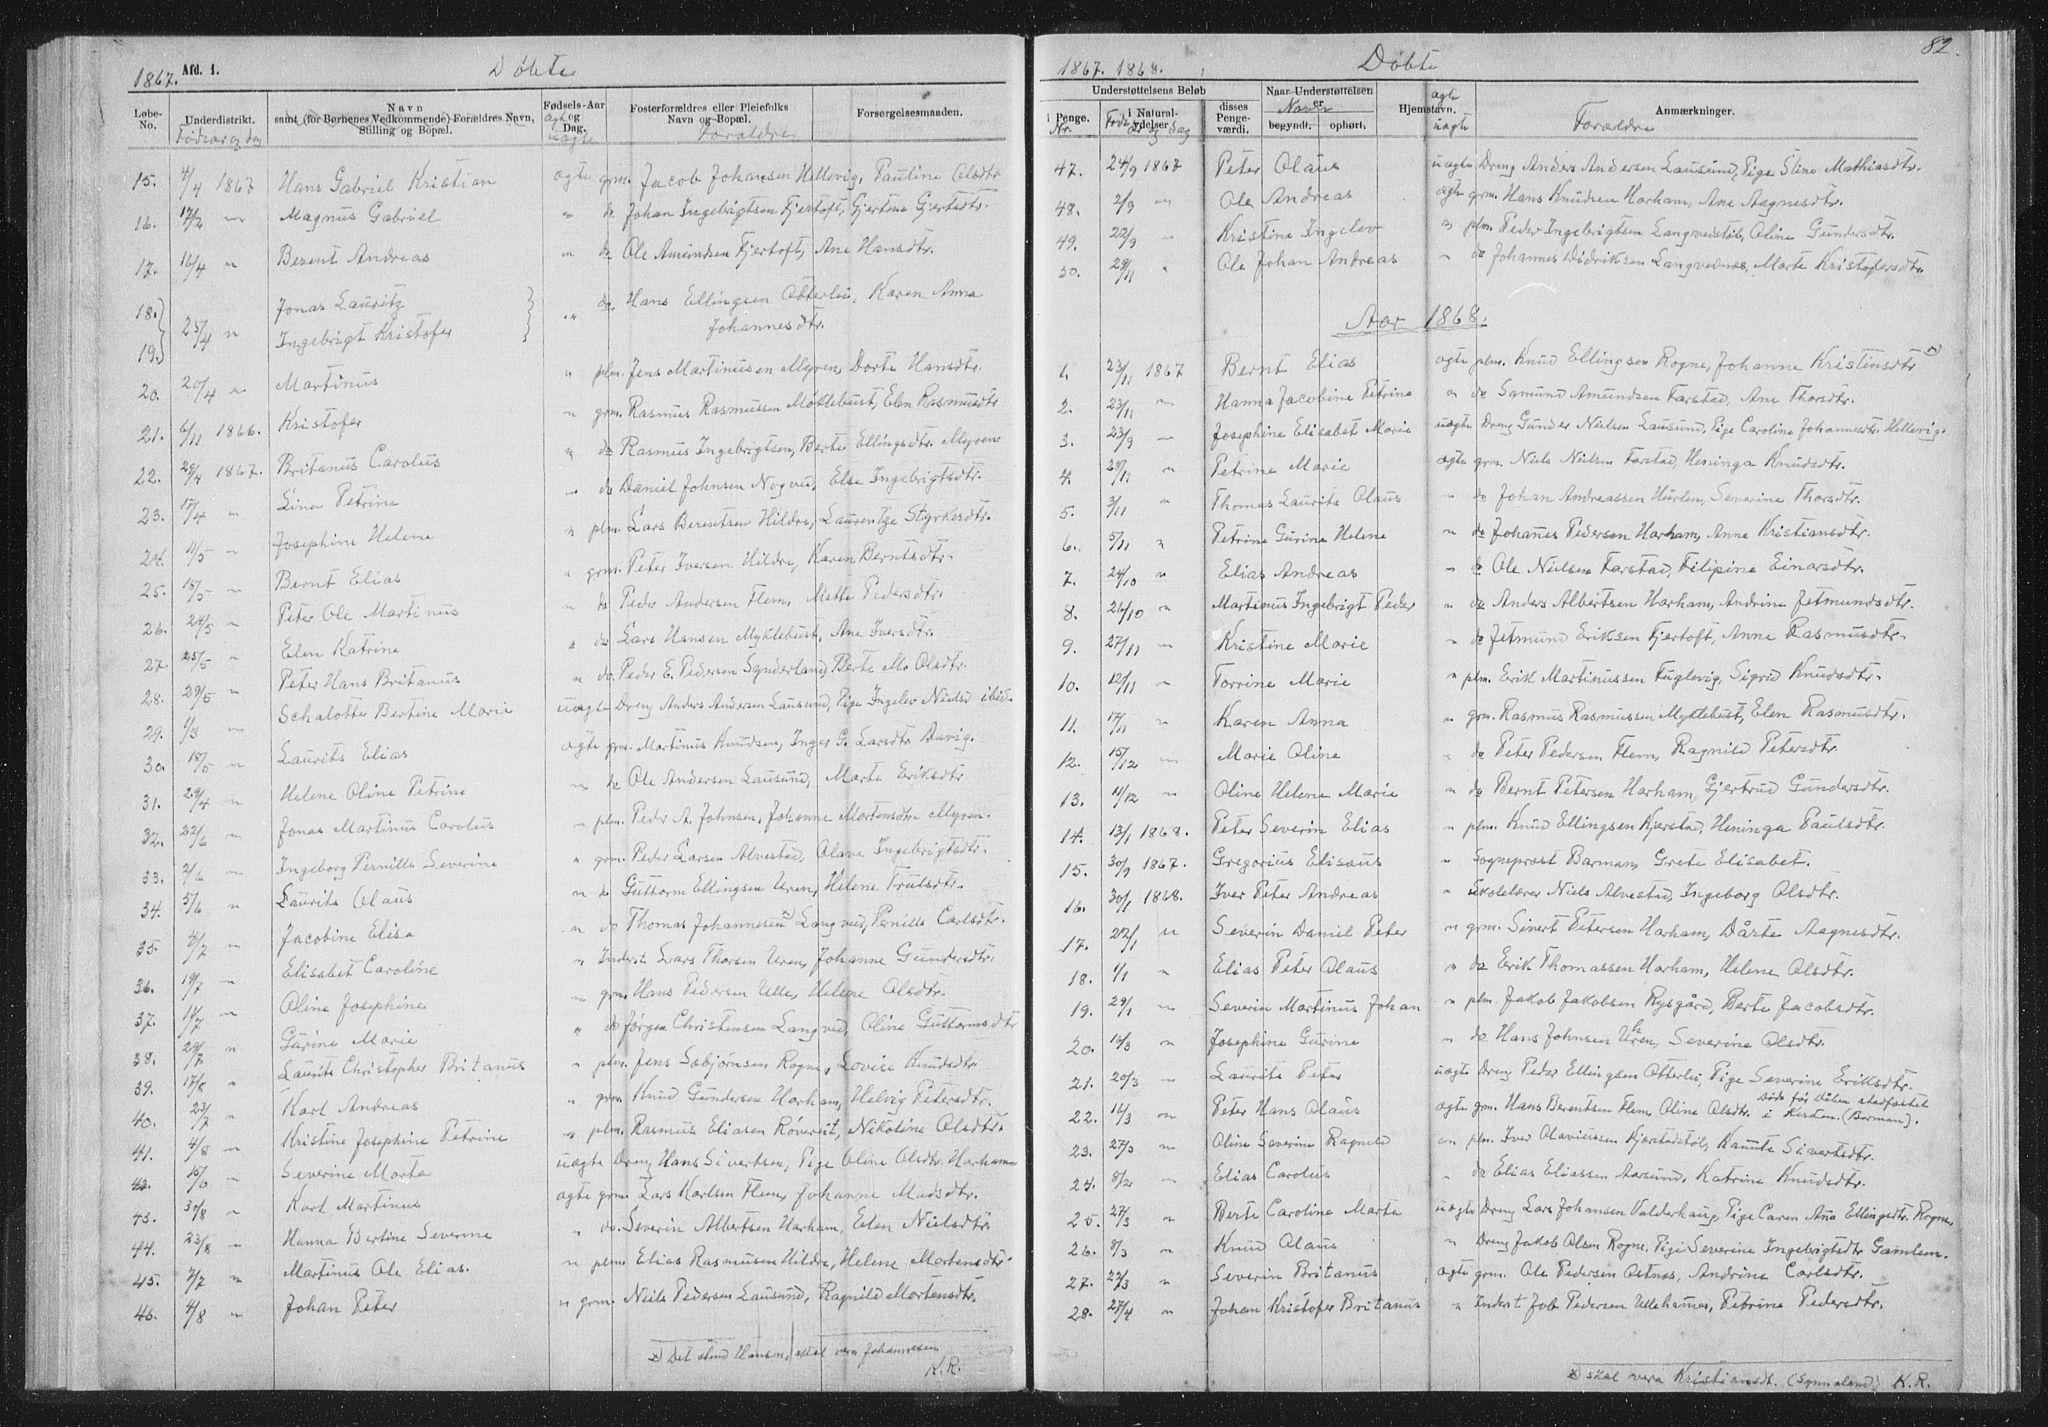 1867. Afd. 1. Döbte
Løbe-No. Underdistrikt. Navn samt (for Børnenes Vedkommende) Forældres Navn, Stilling og Bopæl. Fødsels-Aar og Dag. Fosterforældres eller Pleiefolks Navn og Bopæl. Forsørgelsesmaaden.
Födtaar og dag ægte uægte Forældre
15. 4/4 1867 Hans Gabriel Kristian ægte grm. Jacob Johansen Hellevig, Pauline Olsdtr.
16. 17/2 " Magnus Gabriel " do Johan Ingebrigtsen Fjertoft, Gjertine Gjertsdtr.
17. 16/4 " Berent Andreas " do Ole Amundsen Fjertoft, Ane Hansdtr.
18. Jonas Lauritz " do Hans Ellingsen Otterlei, Karen Anna
19. 25/4 " Ingebrigt Kristofer Johannesdtr.
20. 20/4 " Martinus " plm. Jens Martinusen Myren, Dorte Hansdtr.
21. 6/11 1866. Kristofer " grm. Rasmus Rasmussen Möklebust, Elen Rasmusdtr
22. 29/4 1867. Britanus Carolus " do Rasmus Ingebrigtsen, Berte Ellingsdtr. Myren
23. 17/4 " Lina Petrine " do Daniel Johnsen Nogved, Else Ingebrigtsdtr.
24. 11/5 " Josephine Helene " plm. Lars Berentsen Hildre, Laurentze Styrkesdtr.
25. 18/5 " Bernt Elias " grm. Peter Iversen Hildre, Karen Berntsdtr.
26. 24/5 " Peter Ole Martinus " do Peder Andersen Flem, Mette Pedersdtr.
27. 25/5 " Elen Katrine " do Lars Hansen Myklebust, Ane Iversdtr.
28. 29/5 " Peter Hans Britanus " do. Peder E. Pedersen Synderland, Berte Mo Olsdtr.
29. 1/3 " Schalotte Bertine Marie uægte Dreng Anders Andersen Lausund, Pige Ingelev Nielsd ibid.
30. 18/5 " Laurits Elias ægte grm. Martinus Knudsen, Inger G. Larsdtr Davig.
31. 29/4 " Helene Oline Petrine " do Ole Andersen Lausund, Marte Eriksdtr
32. 22/6 " Jonas Martinus Carolus " plm. Peder A. Johnsen, Johanne Mortensdtr Myren.
33. 2/6 " Ingeborg Pernille Severine " grm. Peder Larsen Alvestad, Olave Ingebrigtsdtr.
34. 5/6 " Laurits Olaus " do Guttorm Ellingsen Uren, Helene Trulsdtr.
35. 2/7 " Jacobine Elisa " do Thomas Johannesen x) Langved, Pernille Carlsdtr.
36. 19/7 " Elisabet Caroline " Inderst Lars Thorsen Uren, Johanne Gundersdtr.
37. 14/7 " Oline Josephine " grm. Hans Pedersen Ulle, Helene Olsdtr.
38. 29/7 " Gurine Marie " do Jörgen Christensen Langved, Oline Guttormsdtr
39. 17/8 " Laurits Christopher Britanus " plm. Jens Sæbjörnsen Rogne, Lovise Knudsdtr
40. 23/7 " Karl Andreas " grm. Knud Gundersen Harham, Helvig Petersdtr.
41. 4/8 " Kristine Josephine Petrine " plm. Rasmus Eliasen Röverset, Nikoline Olsdtr.
42. 15/6 " Severine Marta uægte Dreng Hans Sivertsen, Pige Oline Olsdtr. Harham
43. 30/8 " Karl Martinus ægte grm. Lars Karlsen Flem, Johanne Madsdtr.
44. 23/8 " Hanna Bertine Severine " do. Severin Albertsen Harham, Elen Nielsdtr.
45. 7/7 " Martinus Ole Elias. " plm. Elias Rasmusen Hildre, Helene Mortensdtr.
46. 4/8 " Johan Peter " grm. Niels Pedersen Lausund, Ragnild Mortensdtr.
x) Det stod Hansen, skal vera Johannesen
K.R.
82.
1867. 1868. Döbte
Understøttelsens Beløb Naar Understøttelsen er Hjemstavn. Anmærkninger.
i Penge. i Naturalydelser disses Pengeværdi. begyndt. ophørt.
Nr. Födt aar og dag Navn ægte uægte Forældre
47. 24/9 1867 Peter Olaus uægte Dreng Anders Andersen Lausund, Pige Stine Mathiasdtr.
48. 2/9 " Ole Andreas ægte grm. Hans Knudsen Harham, Ane Aagnesdtr.
49. 22/9 " Kristine Ingelev " plm. Peder Ingebrigtsen Langvedstöl, Oline Gundersdtr.
50. 29/11 " Ole Johan Andreas " do Johannes Didriksen Langvednes, Marte Kristofersdtr.
Aar 1868.
1. 23/11 1867 Bernt Elias ægte plm. Knud Ellingsen Rogne, Johanne Kristinsdtr x)
2. 23/11 " Hanna Jacobine Petrine " do Samund Amundsen Farstad, Ane Thorsdtr.
3. 23/9 " Josephine Elisabet Marie uægte Dreng Gunder Nielsen Lausund, Pige Caroline Johannesdtr. Hellevig.
4. 29/11 " Petrine Marie ægte grm. Niels Nielsen Farstad, Heninga Knudsdtr.
5. 3/11 " Thomas Laurits Olaus " do Johan Andreassen Hurlen, Severine Thorsdtr.
6. 5/11 " Petrine Gurine Helene " do Johanes Pedersen Harham, Anne Kristiansdtr.
7. 24/10 " Elias Andreas " do Ole Nielsen Farstad, Filipine Einarsdtr.
8. 26/10 " Martinus Ingebrigt Peder " do Anders Albertsen Harham, Andrine Jetmundsdtr.
9. 27/11 " Kristine Marie " do Jetmund Eriksen Fjertoft, Anne Rasmusdtr.
10. 12/11 " Torrine Marie " plm. Erik Martinussen Fuglevig, Sigrid Knudsdtr.
11. 17/11 " Karen Anna " grm. Rasmus Rasmussen Myklebust, Elen Rasmusdtr.
12. 15/12 " Marie Oline " do Peter Pedersen Flem, Ragnild Petersdtr.
13. 11/12 " Oline Helene Marie " do Bernt Petersen Harham, Gjertrud Gundersdtr.
14. 13/1 1868. Peter Severin Elias " plm. Knud Ellingsen Kjerstad, Heninga Paulsdtr.
15. 30/9 1867. Gregorius Elisæus " Sogneprost Barman, Grete Elisabet.
16. 30/1 1868. Iver Peter Andreas " Skolelærer Niels Alvestad, Ingeborg Olsdtr.
17. 22/1 " Severin Daniel Peter " grm. Sivert Petersen Harham, Dårte Aagnesdtr.
18. 1/1 " Elias Peter Olaus " do Erik Thomassen Harham, Helene Olsdtr.
19. 29/1 " Severin Martinus Johan " plm. Jakob Jakobsen Rysgård, Berte Jacobsdtr.
20. 14/3 " Josephine Gurine " do Hans Johnsen Uren, Severine Olsdtr.
21. 20/3 " Laurits Peter uægte Dreng Peder Ellingsen Otterlei, Pige Severine Eriksdtr.
22. 16/3 " Peter Hans Olaus ægte grm. Hans Berentsen Flem, Oline Olsdtr. döde för dåben stadfæstet i kirken. (Barman).
23. 27/3 " Oline Severine Ragnild " plm. Iver Olaviussen Kjerstadstöl, Kanute Sivertsdtr.
24. 8/2 " Elias Carolus " do Elias Eliassen Aarsund, Katrine Knudsdtr.
25. 27/3 " Berte Caroline Marta uægte Dreng Lars Johansen Valderhaug, Pige Caren Ana Ellingsdtr. Rogne,
26. 8/3 " Knud Olaus " Dreng Jakob Olsen Rogne, Pige Severine Ingebrigtsdtr Gamlem.
27. 22/3 " Severin Britanus ægte grm. Ole Pedersen Ostnæs, Andrine Carlsdtr.
28. 27/4 " Johan Kristofer Britanus " Inderst Job Pedersen Ullehamen, Petrine Pedersdtr.
x) skal vera Kristiansdt. (Synnaland) K.R.